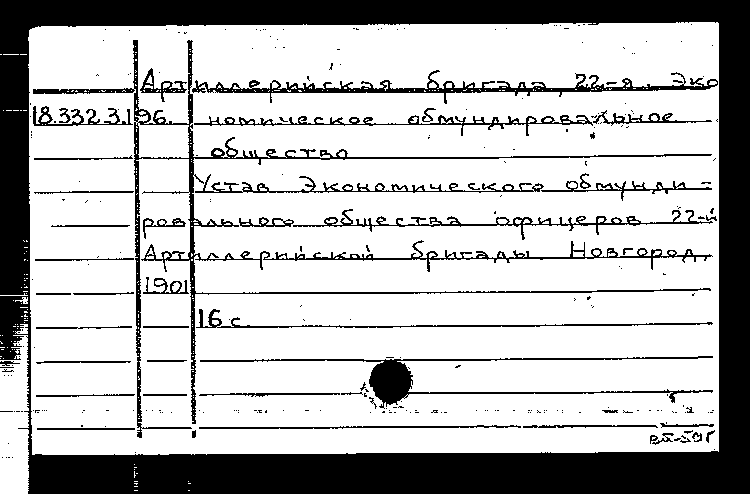 Артиллерийская бригада, 22-я. Эко
18.332.3.196. номическое обмундировальное
общество
Устав Экономического обмунди=
ровального общества офицеров 22-й
Артиллерийской бригады. Новгород,
1901
16 с.